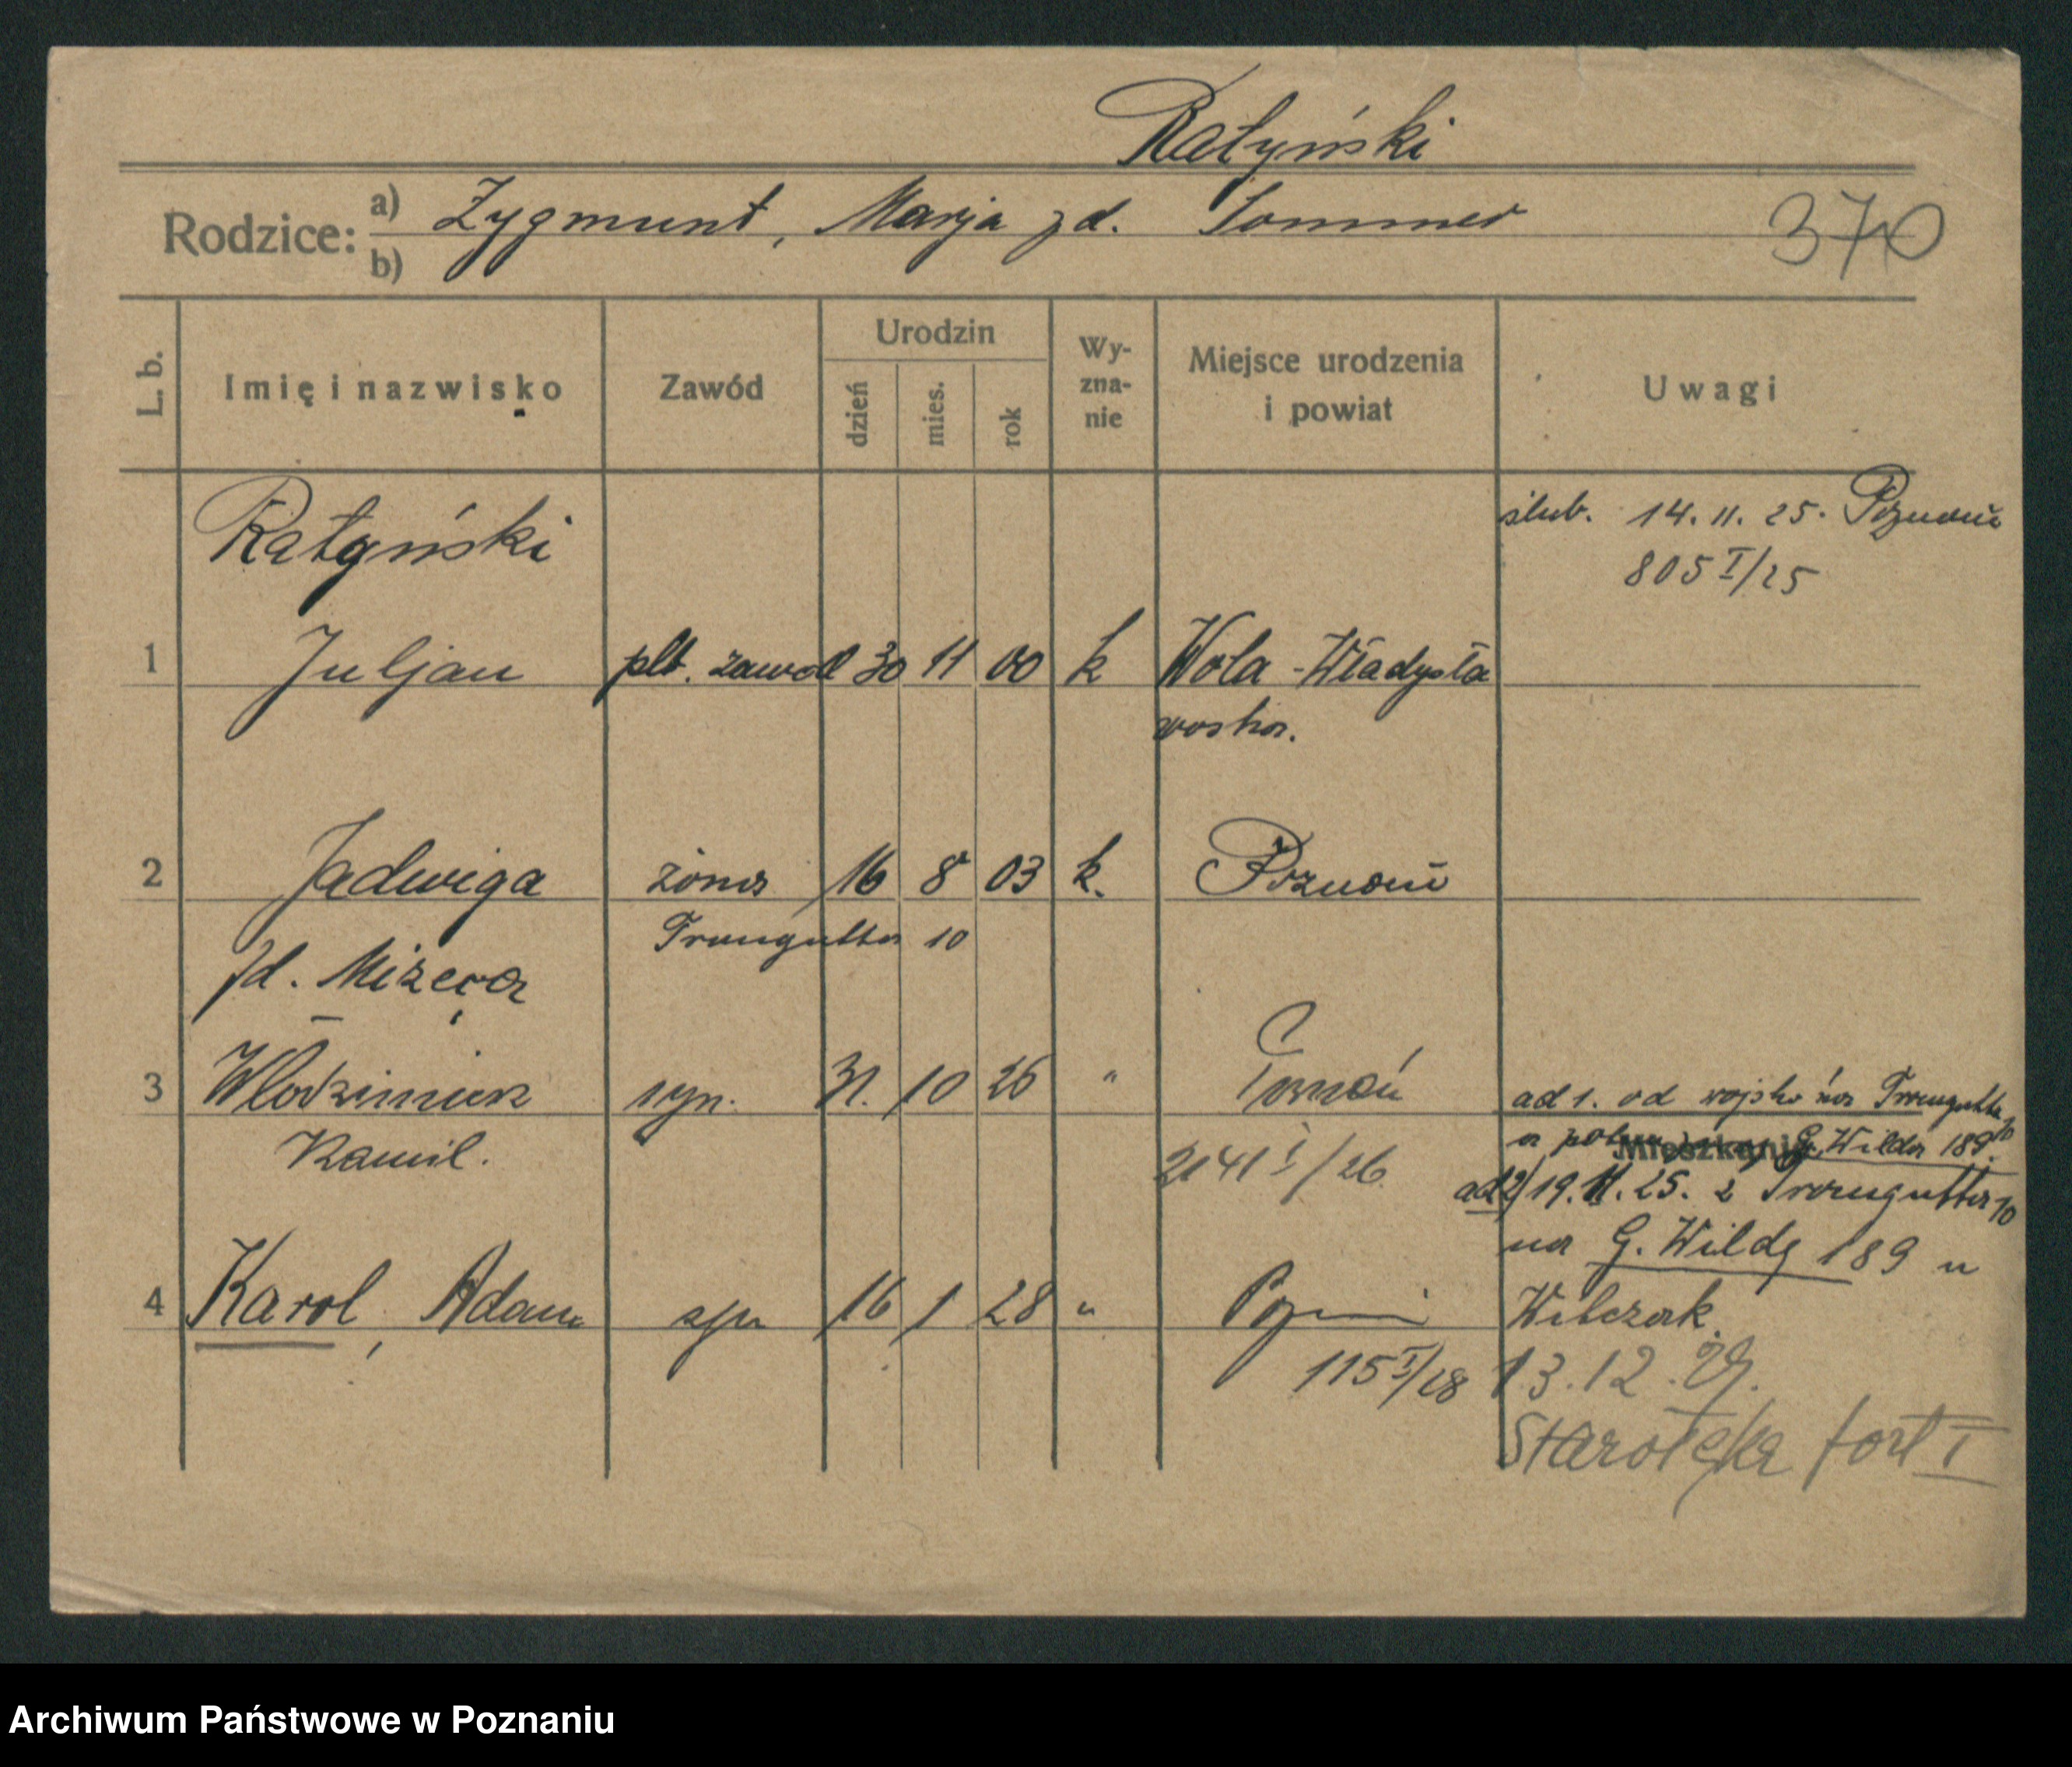 Ratyński
Rodzice: a) Zygmunt, Marja zd. Sommer 370
b)
L. b. Imię i nazwisko Zawód Urodzin dzień mies. rok Wyznanie Miejsce urodzenia i powiat Uwagi
Ratyński ślub. 14. 11. 25. Poznań
805 I/25
1 Juljan plt. zawod 30 11 00 k Wola-Władysła
wska.
2 Jadwiga żona 16 8 03 k. Poznań
Traugutta 10
zd. Mizera
3 Włodzimierz syn. 31. 10 26 " Poznań ad 1. od wojska na Traugutta 10
Kamil. 2141 I/26
a G. Wilda 189.
Mieszkanie
ad 2/ 19. 11. 25. z Traugutta 10
na G. Wildę 189 u
4 Karol, Adam syn 16 1 28 " Pozn Wilczak.
115 I/28 13.12.29.
Starołęka fort I
Archiwum Państwowe w Poznaniu